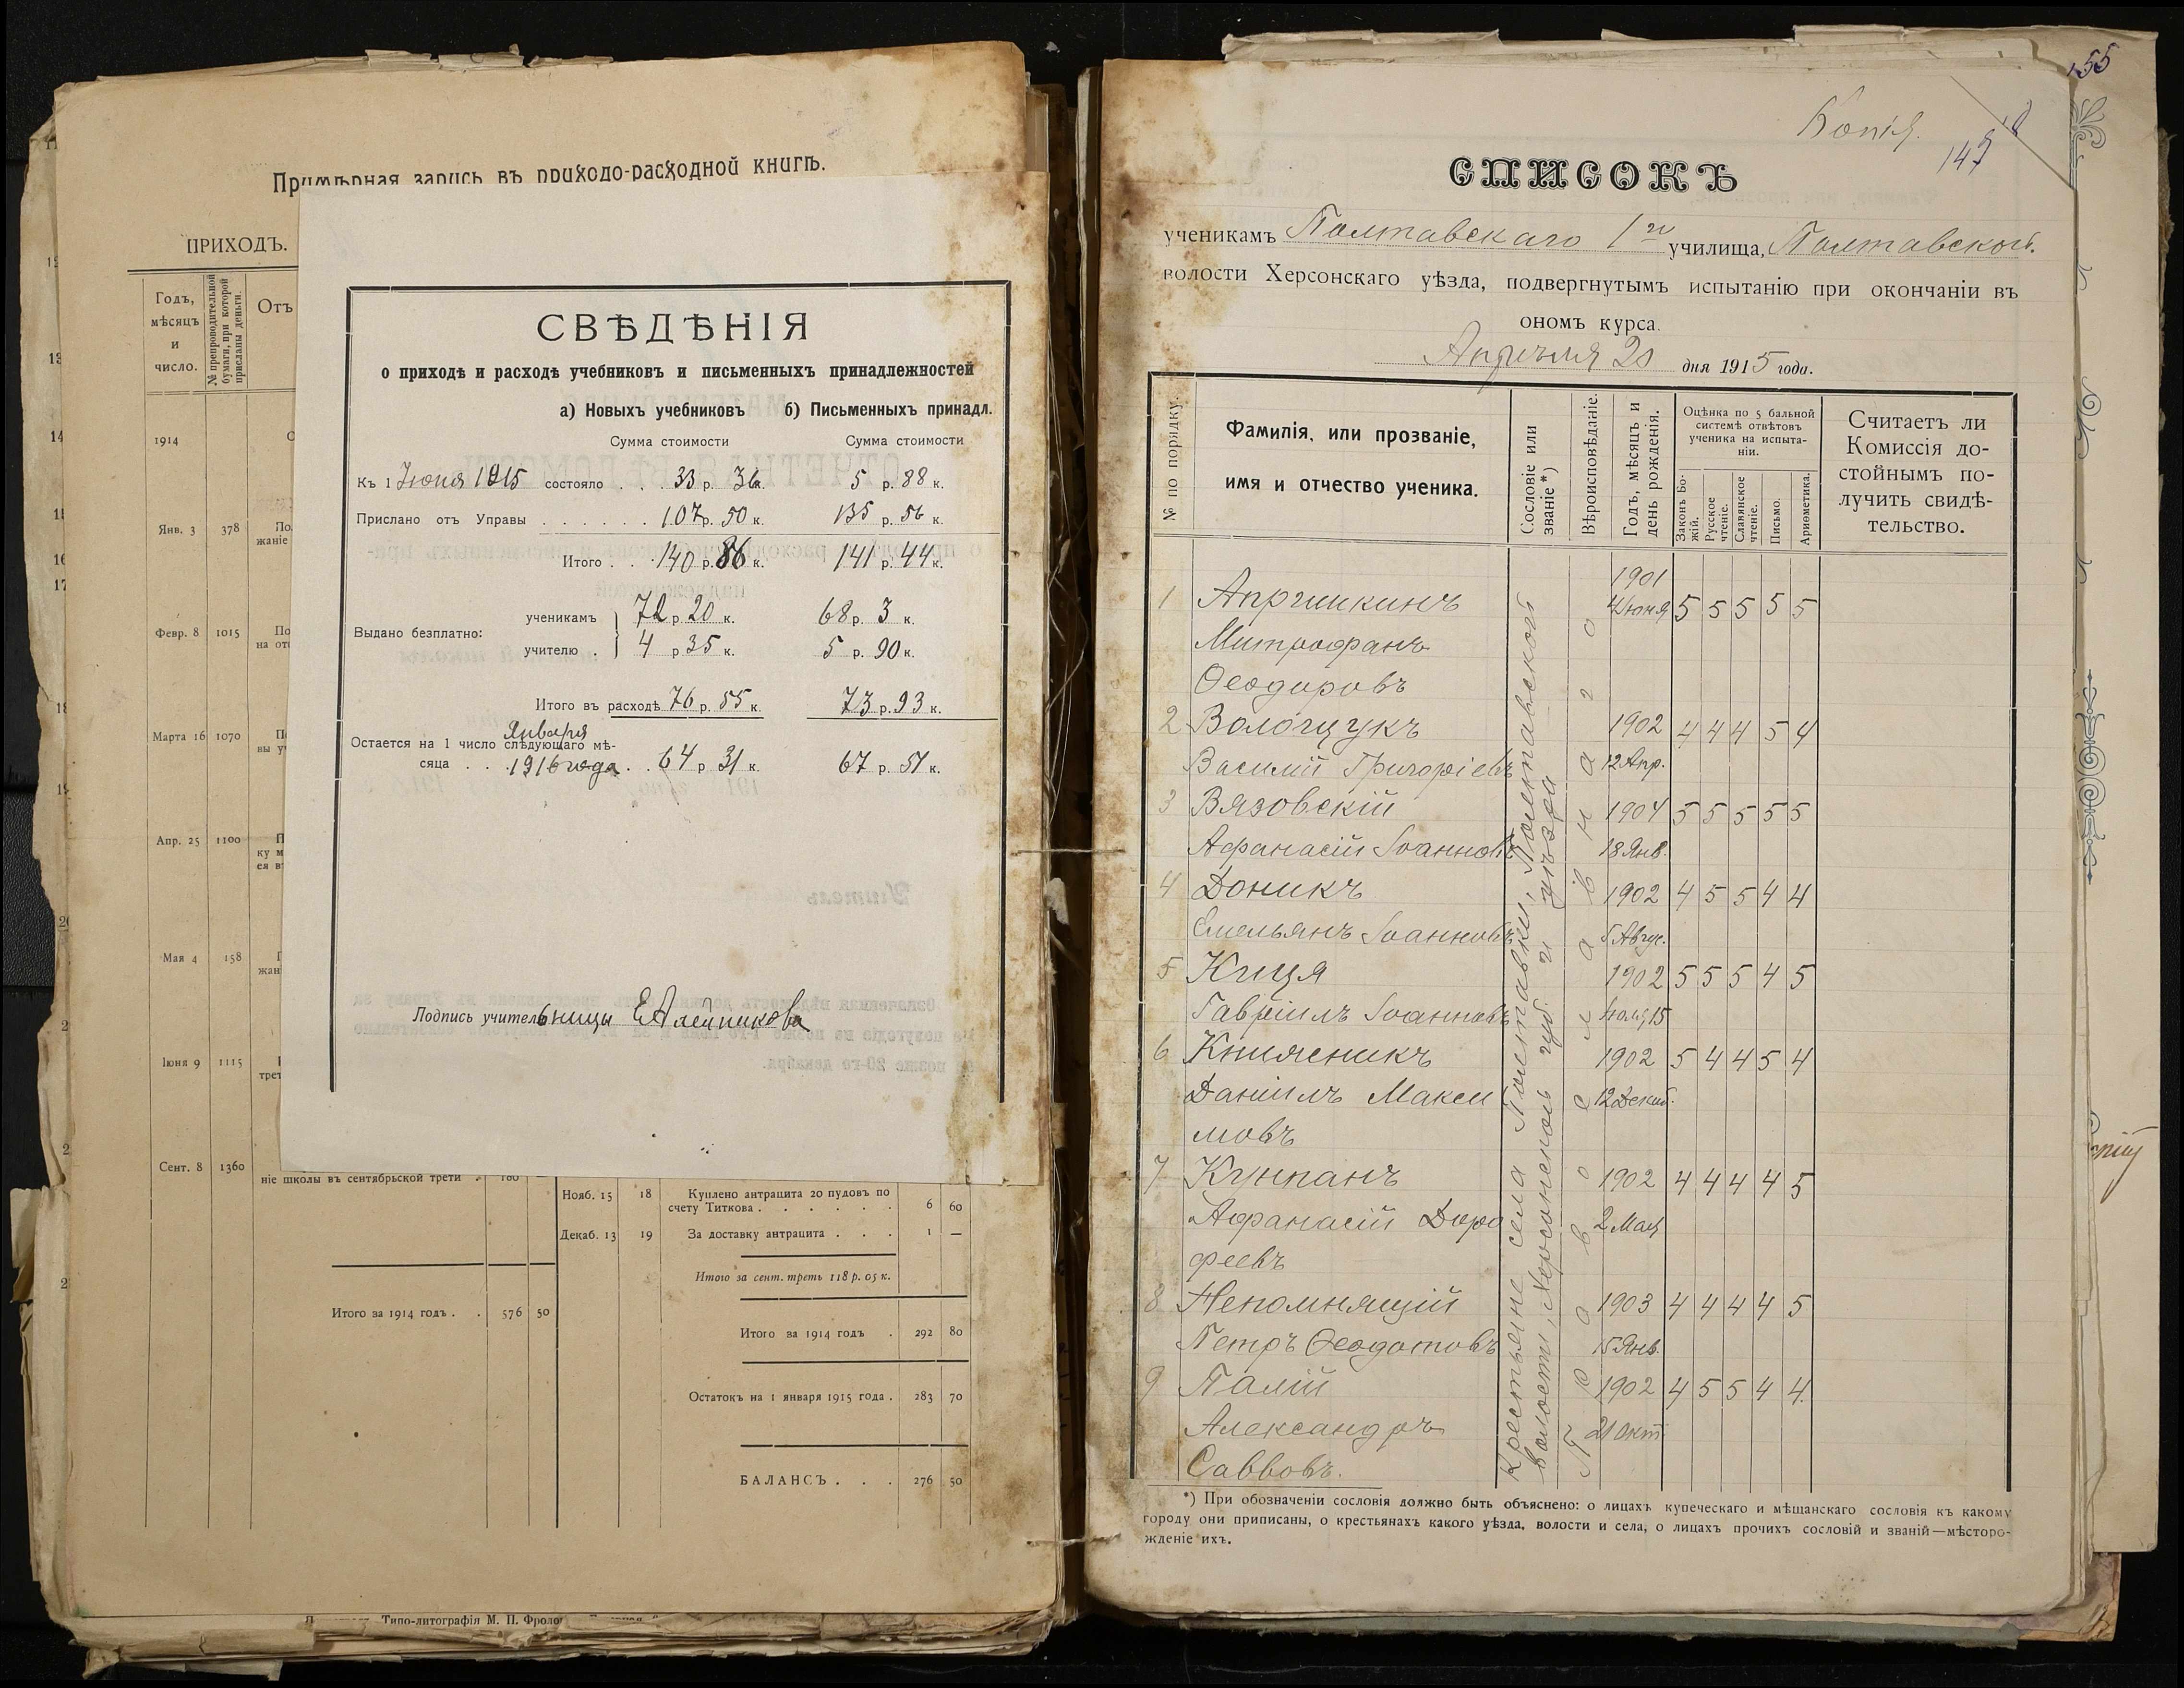 Примѣрная запись въ приходо-расходной книгѣ.
ПРИХОДЪ.
Годъ, мѣсяцъ и число.
№ препроводительной бумаги, при которой присланы деньги.
Отъ
1914
Янв. 3 378
жаніе
Февр. 8 1015 По
на
Марта 16 1070
вы
Апр. 25 1100
ку м
ея в
Мая 4 158
жан
Іюня 9 1115
трет
Сент. 8 1360
ніе школы въ сентябрьской трети . 180 —
Итого за 1914 годъ . . 576 50
Нояб. 15 18 Куплено антрацита 20 пудовъ по
счету Титкова . . . . . . 6 60
Декаб. 13 19 За доставку антрацита . . . 1 —
Итого за сент. треть 118 р. 05 к.
Итого за 1914 годъ . 292 80
Остатокъ на 1 января 1915 года . 283 70
БАЛАНСЪ . . . 276 50
Типо-литографія М. П. Фроло
СВѢДѢНІЯ
о приходѣ и расходѣ учебниковъ и письменныхъ принадлежностей
а) Новыхъ учебниковъ б) Письменныхъ принадл.
Сумма стоимости Сумма стоимости
Къ 1 Іюня 1915 состояло . . . 33 р. 36 к. 5 р. 88 к.
Прислано отъ Управы . . . . . . 107 р. 50 к. 135 р. 56 к.
Итого . . . 140 р. 86 к. 141 р. 44 к.
Выдано безплатно:
ученикамъ 72 р. 20 к. 68 р. 3 к.
учителю . 4 р 35 к. 5 р. 90 к.
Итого въ расходѣ 76 р. 55 к. 73 р. 93 к.
Января
Остается на 1 число слѣдующаго мѣ-
сяца . . . 1916 года . . 64 р 31 к. 67 р. 51 к.
Подпись учительницы Е Алейникова
155
Копія.
149
СПИСОКЪ
ученикамъ Полтавскаго 1го училища, Полтавской
волости Херсонскаго уѣзда, подвергнутымъ испытанію при окончаніи въ
ономъ курса.
Апрѣля 20 дня 1915 года.
№ по порядку.
Фамилія, или прозваніе,
имя и отчество ученика.
Сословіе или званіе *)
Вѣроисповѣданіе.
Годъ, мѣсяцъ и день рожденія.
Оцѣнка по 5 бальной
системѣ отвѣтовъ
ученика на испыта-
ніи.
Законъ Бо-
жій.
Русское
чтеніе.
Славянское
чтеніе.
Письмо.
Ариѳметика.
Считаетъ ли
Комиссія до-
стойнымъ по-
лучить свидѣ-
тельство.
Крестьяне села Полтавки, Полтавской
волости, Херсонской губ. и уѣзда
Православнаго
1901
1 Апришкинъ 4 Іюня 5 5 5 5 5
Митрофанъ
Ѳеодоровъ
2 Волощукъ 1902 4 4 4 5 4
Василій Григоріевъ 12 Апр.
3 Вязовскій 1904 5 5 5 5 5
Афанасій Іоанновъ 18 Янв.
4 Доникъ 1902 4 5 5 4 4
Емельянъ Іоанновъ 5 Авгус.
5 Кица 1902 5 5 5 4 5
Гавріилъ Іоанновъ Іюля, 15
6 1902 5 4 4 5 4
Даніилъ Макси 12 Декаб.
мовъ
7 Кчнпанъ 1902 4 4 4 4 5
Афанасій Доро 2 Мая
феевъ
8 Непомнящій 1903 4 4 4 4 5
Петръ Ѳеодотовъ 15 Янв.
9 Палій 1902 4 5 5 4 4.
Александръ 21 Окт.
Савовъ.
*) При обозначеніи сословія должно быть объяснено: о лицахъ купеческаго и мѣщанскаго сословія къ какому
городу они приписаны, о крестьянахъ какого уѣзда, волости и села, о лицахъ прочихъ сословій и званій—мѣсторо-
жденіе ихъ.